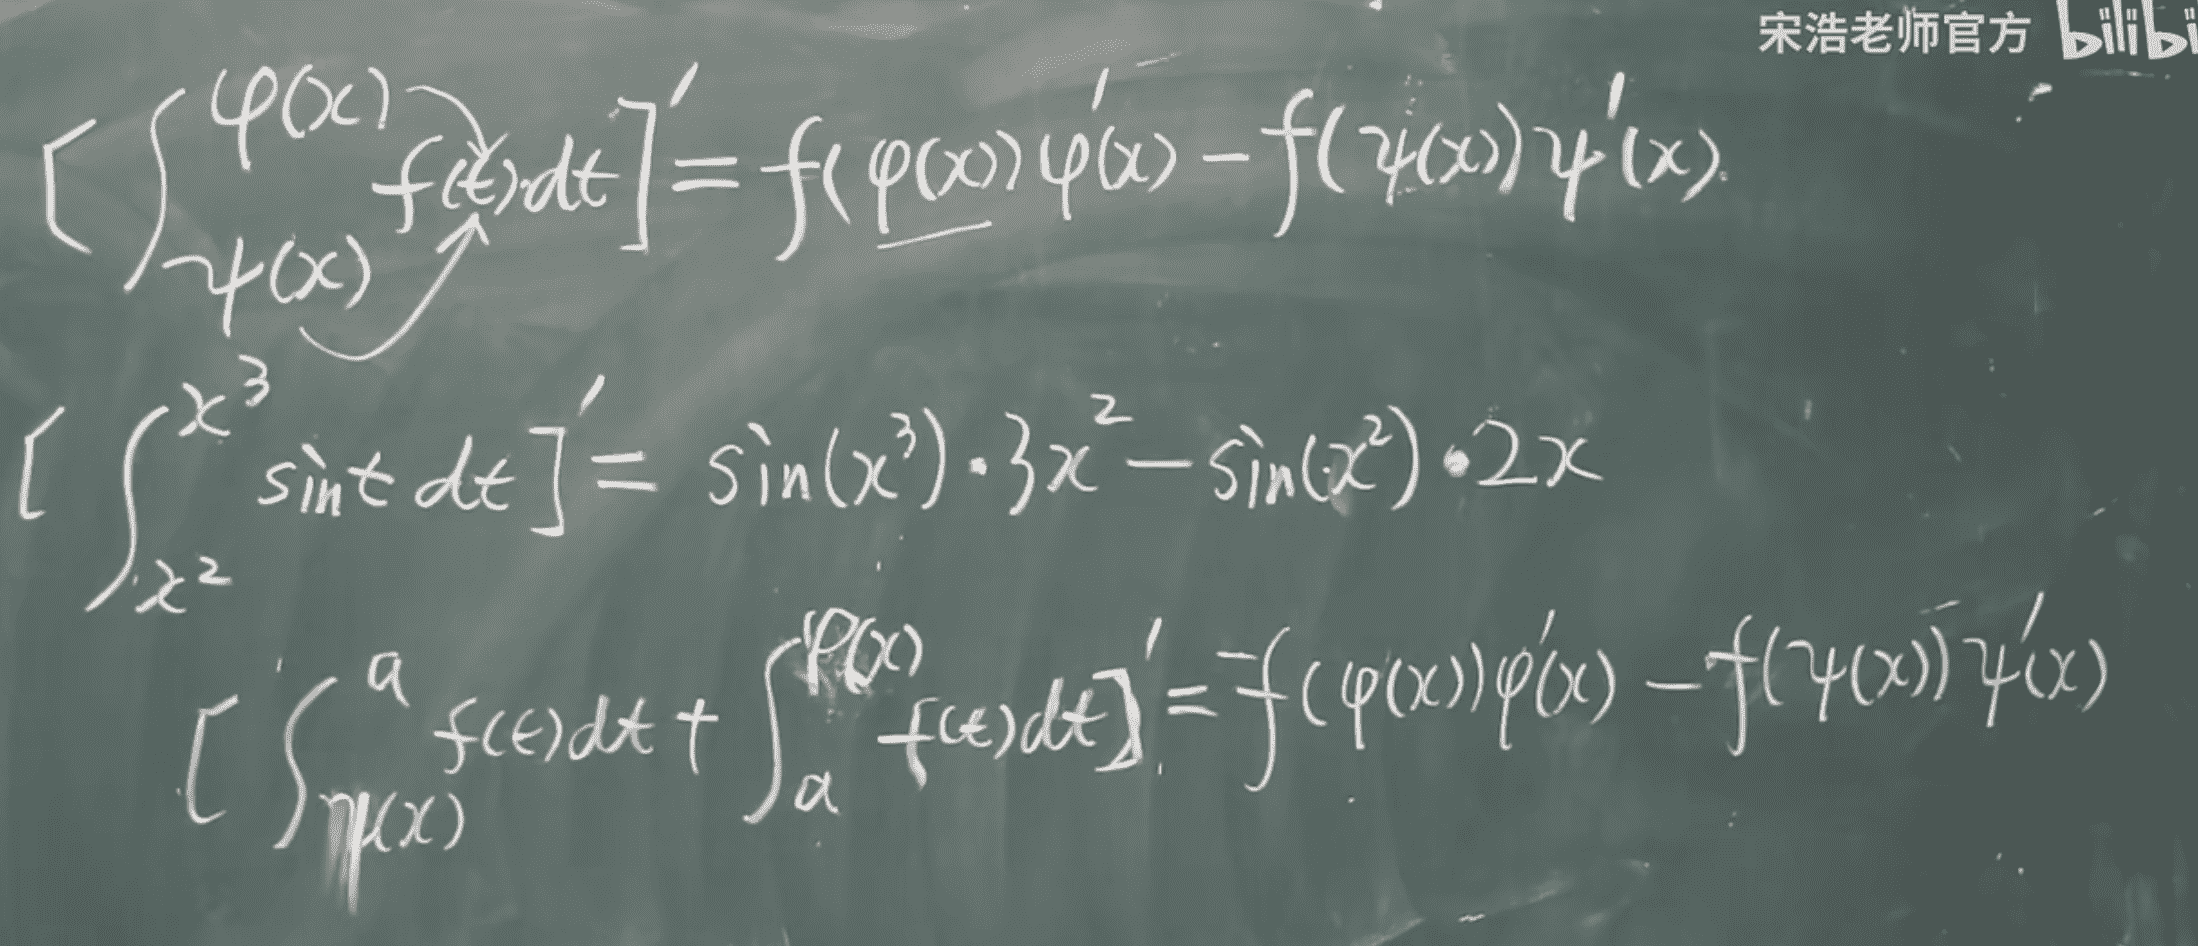 宋浩老师官方 bilibi
[∫_{ψ(x)}^{φ(x)} f(t)dt]' = f(φ(x))φ'(x) - f(ψ(x))ψ'(x)
[∫_{x²}^{x³} sint dt]' = sin(x³)·3x² - sin(x²)·2x
[∫_{ψ(x)}^{a} f(t)dt + ∫_{a}^{φ(x)} f(t)dt]' = f(φ(x))φ'(x) - f(ψ(x))ψ'(x)